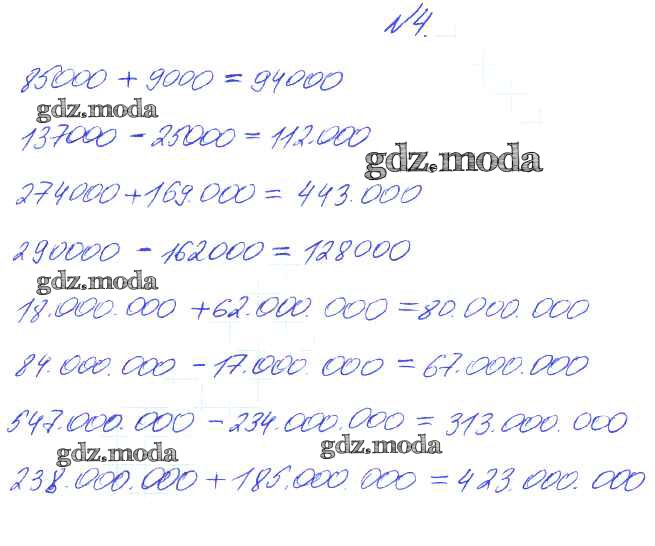 №4.
85000 + 9000 = 94000
gdz.moda
137000 - 25000 = 112.000
gdz.moda
274000 + 169.000 = 443.000
290000 - 162000 = 128000
gdz.moda
18.000.000 + 62.000.000 = 80.000.000
84.000.000 - 17.000.000 = 67.000.000
547.000.000 - 234.000.000 = 313.000.000
gdz.moda gdz.moda
238.000.000 + 185.000.000 = 423.000.000